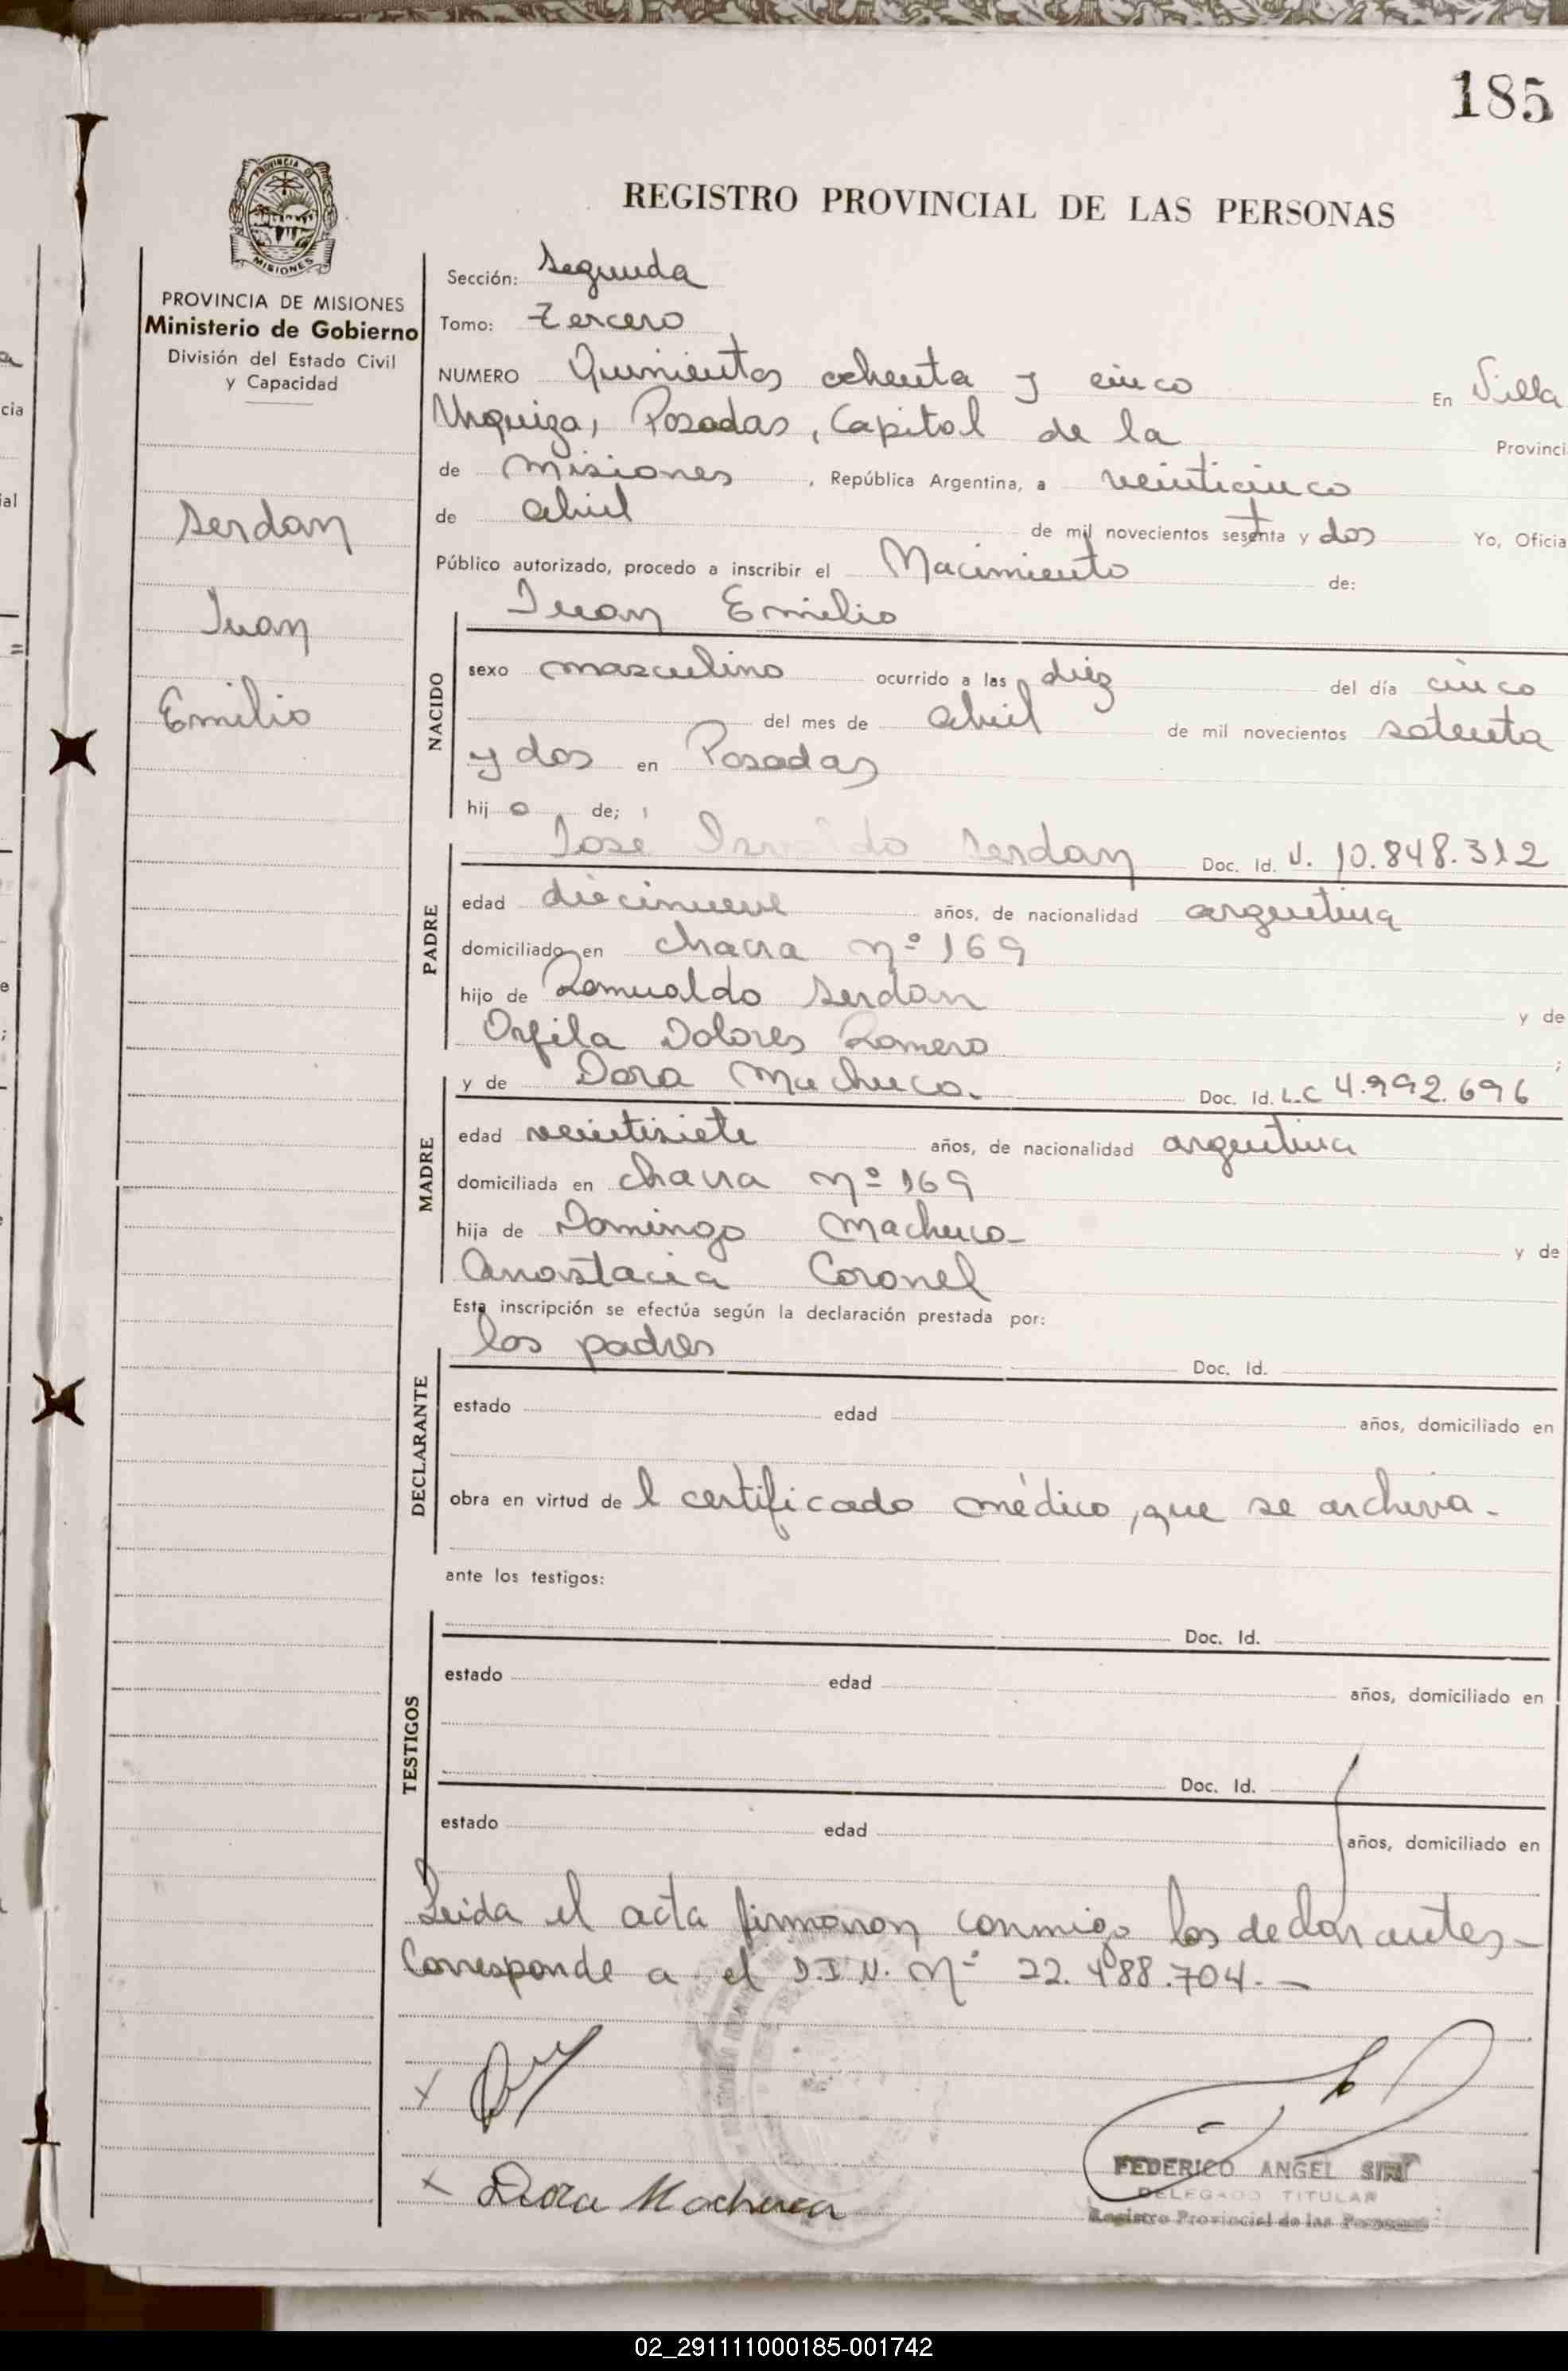 185
REGISTRO PROVINCIAL DE LAS PERSONAS
PROVINCIA DE MISIONES
Ministerio de Gobierno
División del Estado Civil
y Capacidad
Serdan
Juan
Emilio
Sección: Segunda
Tomo: Tercero
NUMERO Quinientos ochenta y cinco En Villa
Urquiza, Posadas, Capital de la Provinci
de Misiones, República Argentina, a veinticinco
de abril de mil novecientos sesenta y dos Yo, Oficia
Público autorizado, procedo a inscribir el Nacimiento de:
Juan Emilio
NACIDO
sexo masculino ocurrido a las diez del día cinco
del mes de abril de mil novecientos setenta
y dos en Posadas
hijo de;
José Serdan Doc. Id. 10.848.312
PADRE
edad diecinueve años, de nacionalidad argentina
domiciliado en chacra nº 169
hijo de Romualdo Serdan y de
Orfila Dolores Romero ;
y de Dora Machuca. Doc. Id. L.C 4.992.696
MADRE
edad veintisiete años, de nacionalidad argentina
domiciliada en chacra nº 169
hija de Domingo Machuca y de
Anastacia Coronel
Esta inscripción se efectúa según la declaración prestada por:
los padres Doc. Id.
DECLARANTE
estado edad años, domiciliado en
obra en virtud de l certificado médico, que se archiva.
ante los testigos:
Doc. Id.
TESTIGOS
estado edad años, domiciliado en
Doc. Id.
estado edad años, domiciliado en
Leida el acta firmaron conmigo los declarantes-
Corresponde a el D.I.N. Nº 22.488.704.-
x
x Dora Machuca
FEDERICO ANGEL
DELEGADO TITULAR
Registro Provincial de las Personas
02_291111000185-001742